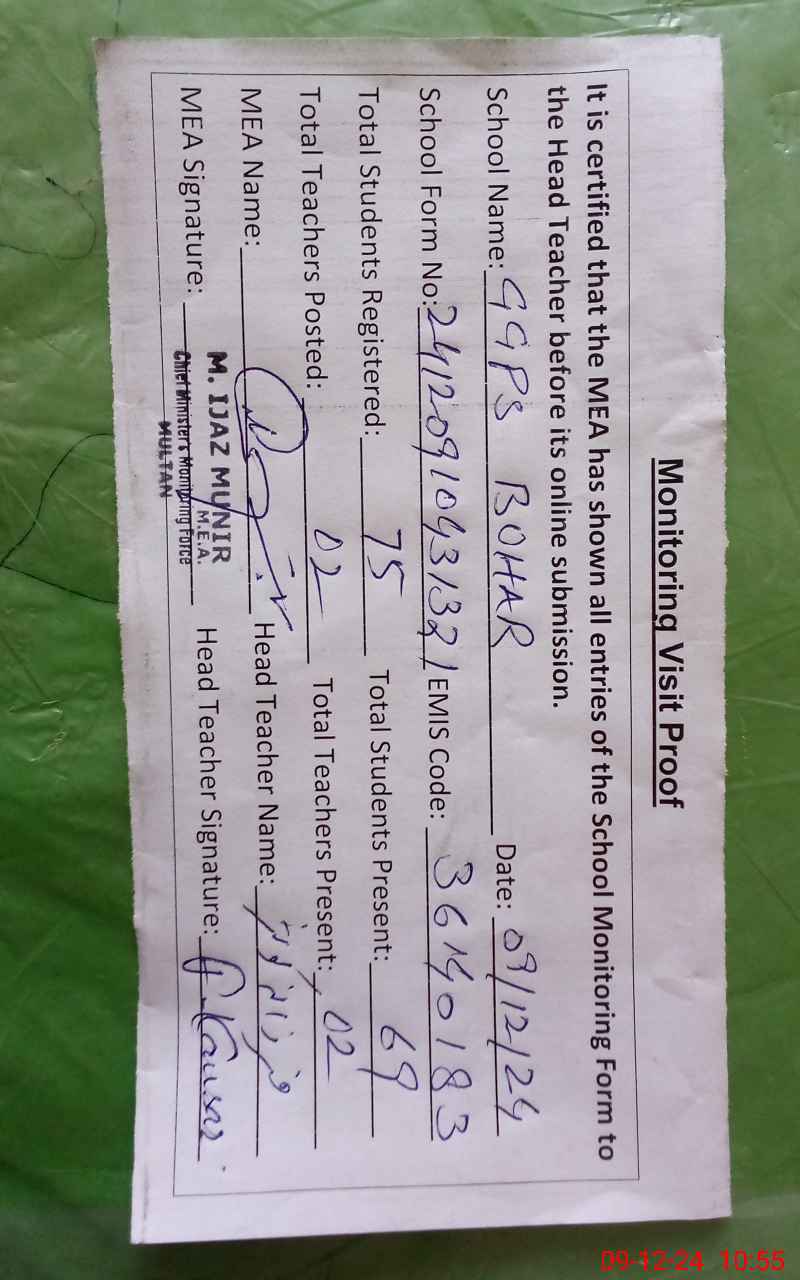 Monitoring Visit Proof
It is certified that the MEA has shown all entries of the School Monitoring Form to
the Head Teacher before its online submission.
School Name: GGPS BOHAR Date: 09/12/24
School Form No: 24120910431321 EMIS Code: 36140183
Total Students Registered: 75 Total Students Present: 69
Total Teachers Posted: 02 Total Teachers Present: 02
MEA Name: Head Teacher Name:
MEA Signature: Head Teacher Signature: Kausar
M. IJAZ MUNIR
M.E.A.
Chief Minister's Monitoring Force
MULTAN
09-12-24 10:55